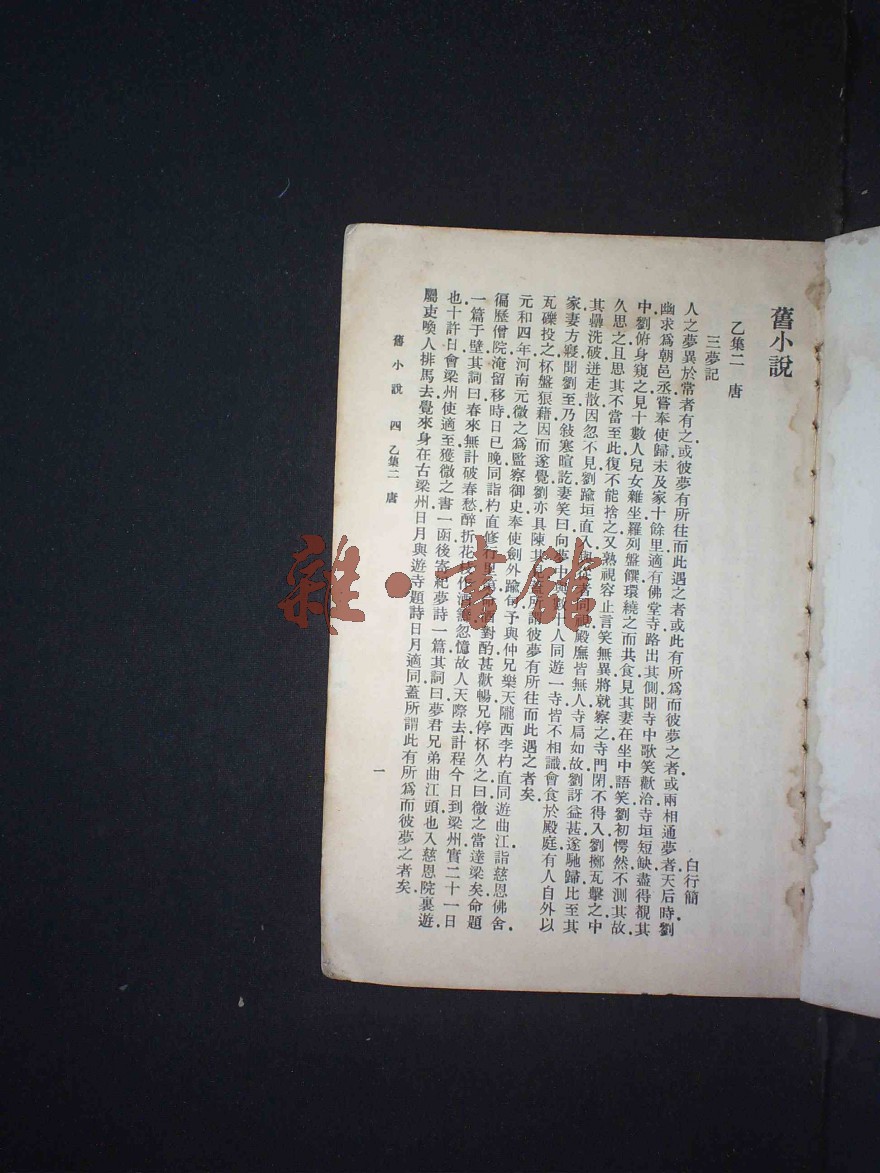 舊小說
乙集二　唐
三夢記
白行簡
人之夢異於常者有之或彼夢有所往而此遇之者或此有所爲而彼夢之者或兩相通夢者天后時劉
幽求爲朝邑丞嘗奉使歸未及家十餘里適有佛堂寺路出其側聞寺中歌笑歡洽寺垣短缺盡得覩其
中劉俯身窺之見十數人兒女雜坐羅列盤饌環繞之而共食見其妻在坐中語笑劉初愕然不測其故
久思之且思其不當至此復不能捨之又熟視容止言笑無異將就察之寺門閉不得入劉擲瓦擊之中
其罍洗破迸走散因忽不見劉踰垣直入與從者同視殿廡皆無人寺扃如故劉訝益甚遂馳歸比至其
家妻方寢聞劉至乃敍寒暄訖妻笑曰向夢中與數十人同遊一寺皆不相識會食於殿庭有人自外以
瓦礫投之杯盤狼藉因而遂覺劉亦具陳其見蓋所謂彼夢有所往而此遇之者矣
元和四年河南元微之爲監察御史奉使劍外踰旬予與仲兄樂天隴西李杓直同遊曲江詣慈恩佛舍
徧歷僧院淹留移時日已晚同詣杓直修行里第命酒對酌甚歡暢兄停杯久之曰微之當達梁矣命題
一篇于壁其詞曰春來無計破春愁醉折花枝作酒籌忽憶故人天際去計程今日到梁州實二十一日
也十許日會梁州使適至獲微之書一函後寄紀夢詩一篇其詞曰夢君兄弟曲江頭也入慈恩院裏遊
屬吏喚人排馬去覺來身在古梁州日月與遊寺題詩日月適同蓋所謂此有所爲而彼夢之者矣
舊小說　四　乙集二　唐
一
雜·書館